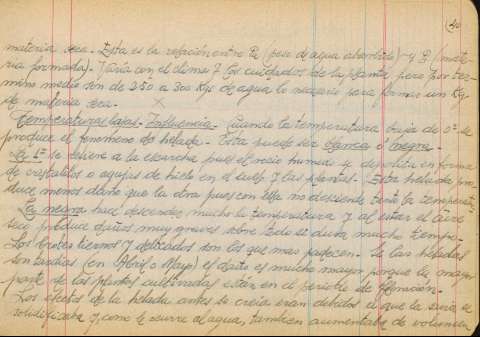 40
materia seca. Esta es la relación entre Pa (peso de agua absorbida) y P. (mate-
ria formada). Varía con el clima y los cuidados de la planta pero por ter-
mino medio son de 250 a 300 Kgs de agua lo necesario para formar un Kg
de materia seca.
Temperaturas bajas - Influencia. Cuando la temperatura baja de 0º se
produce el fenomeno de helada. Esta puede ser blanca o negra.
La 1ª se refiere a la escarcha pues el rocio humedo y deposita en forma
de cristalitos o agujas de hielo en el suelo y las plantas. Esta helada pro-
duce menos daño que la otra pues con ella no desciende tanto la temperat.
La negra hace descender mucho la temperatura y al estar el aire
seco produce daños muy graves sobre todo si dura mucho tiempo.
Los brotes tiernos y delicados son los que mas padecen. Si las heladas
son tardias (en Abril o Mayo) el daño es mucho mayor porque la mayor
parte de las plantas cultivadas estan en el periodo de floración.
Los efectos de la helada antes se creia eran debidos a que la savia se
solidificaba y, como le ocurre al agua, tambien aumentaba de volumen